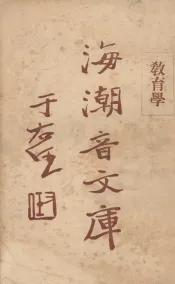 教育學
海潮音文庫
于右任